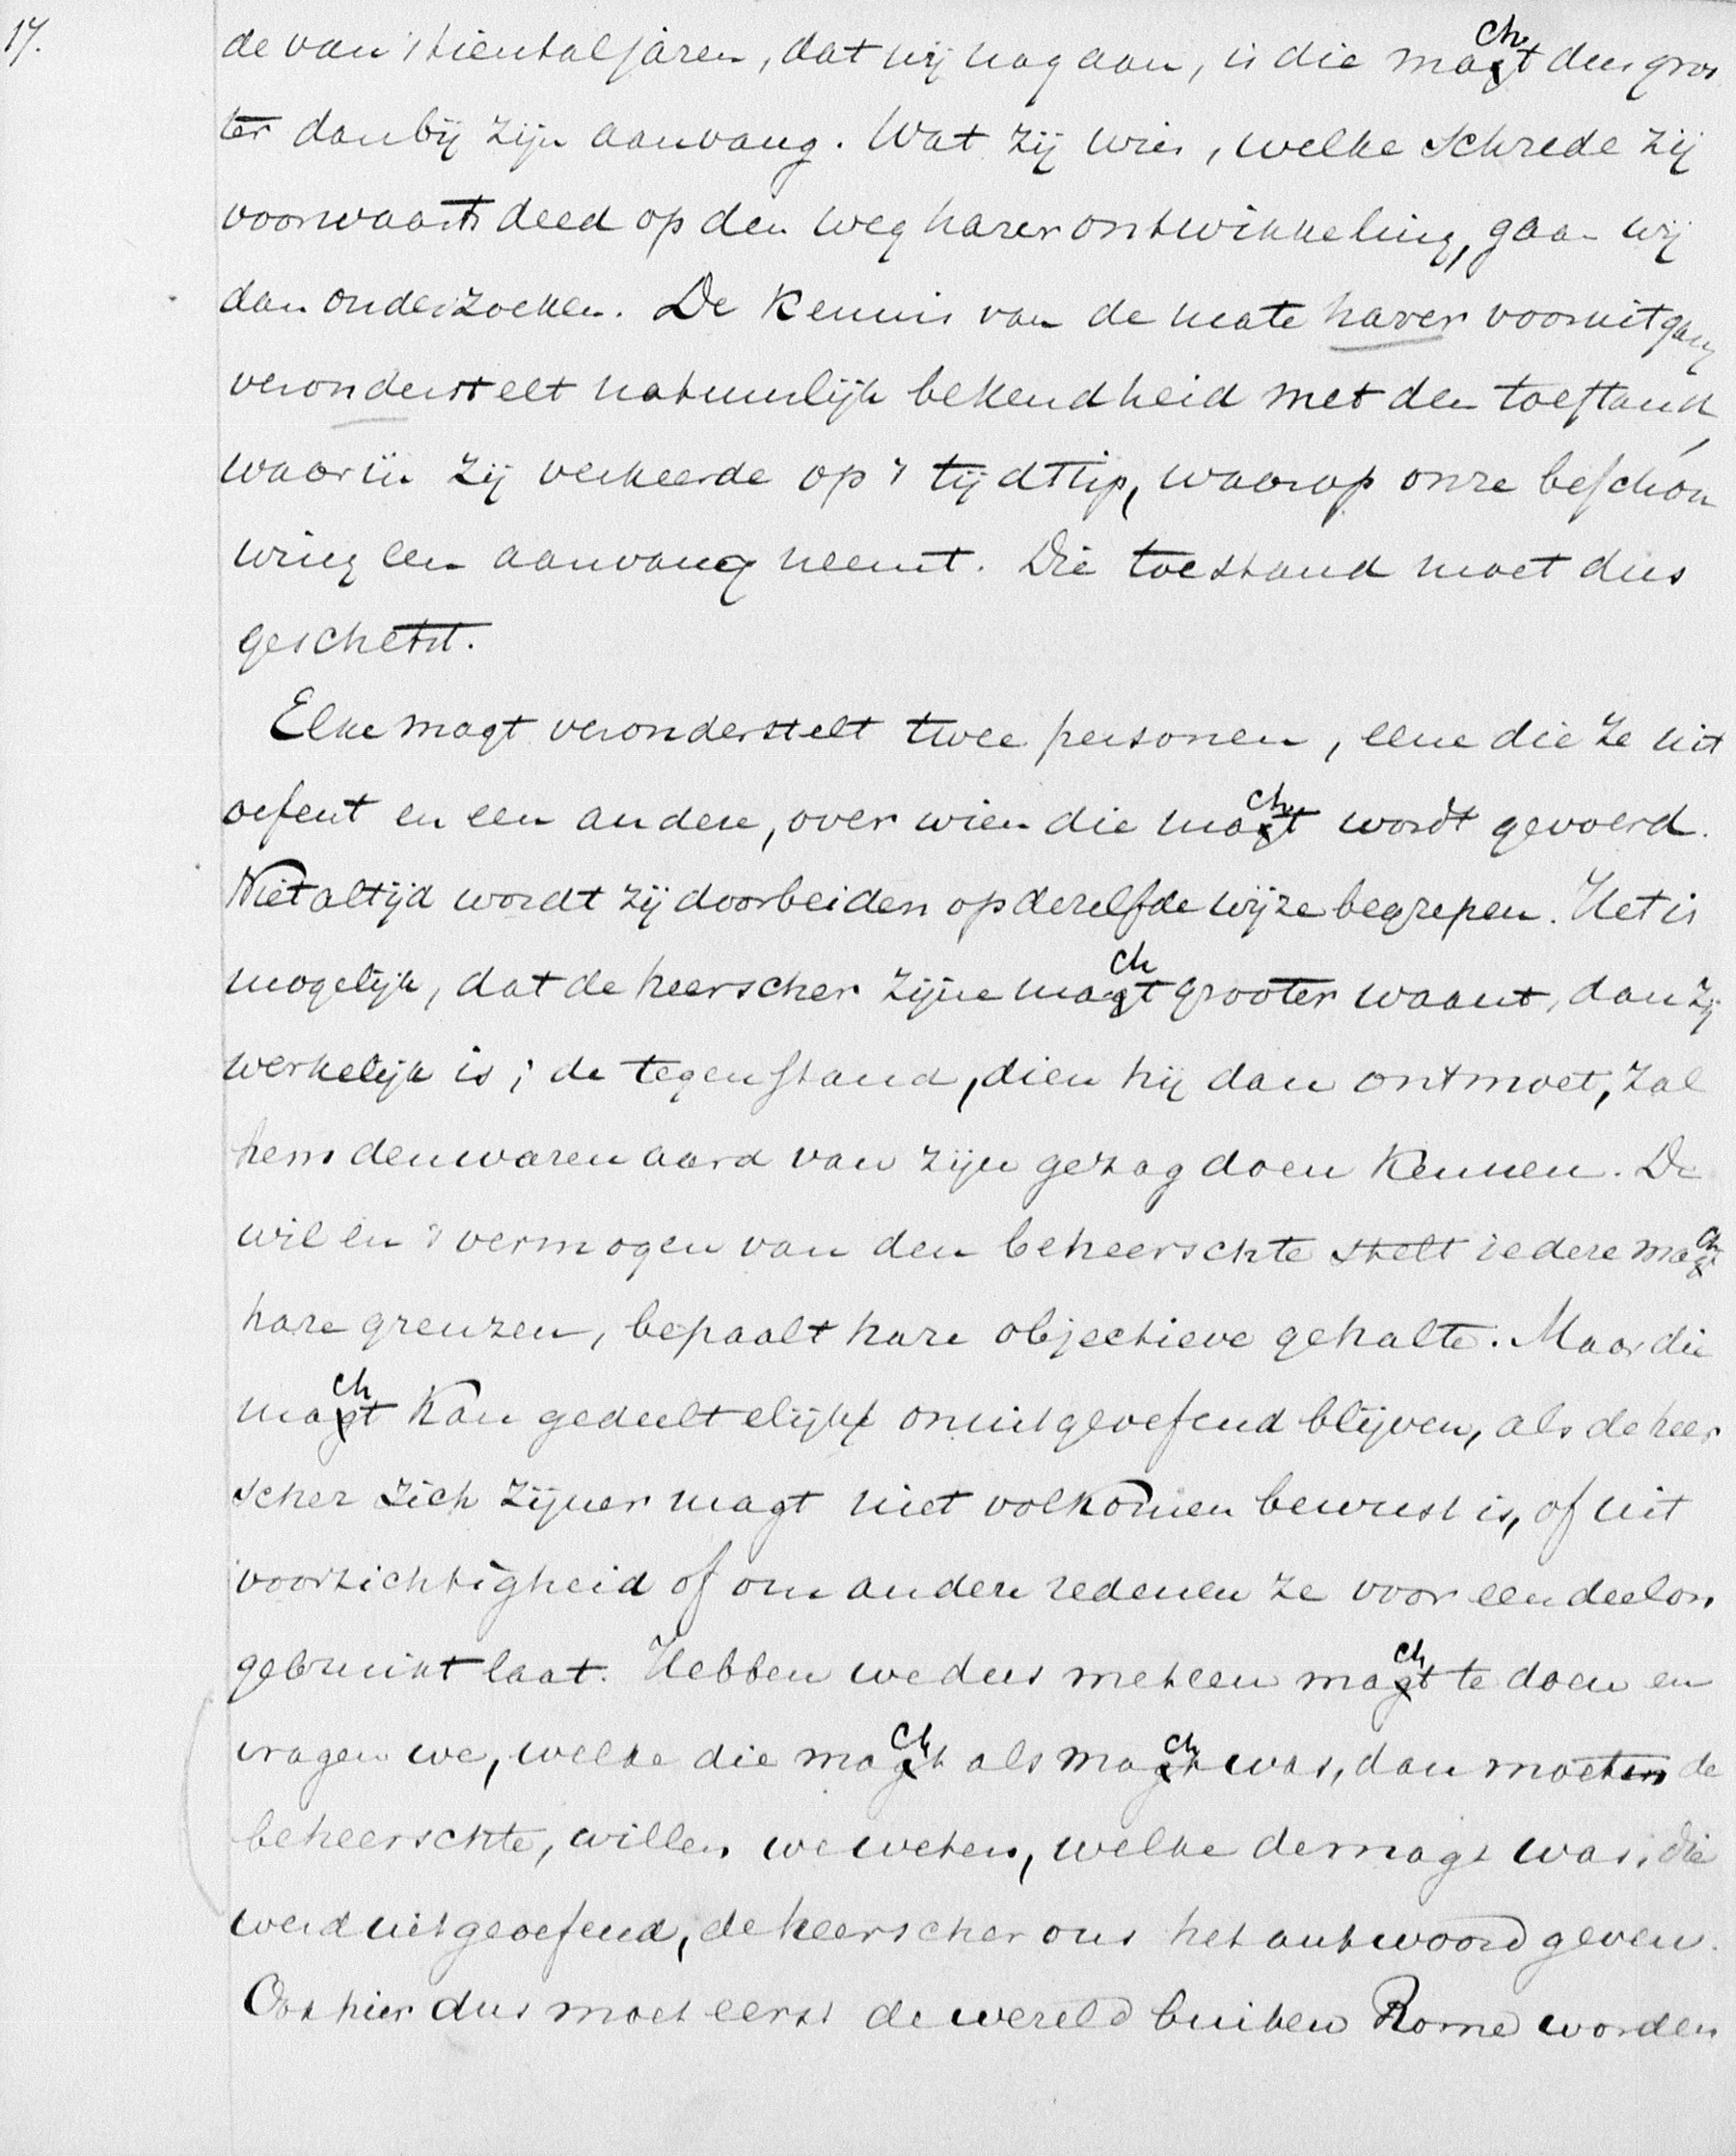 17.
de van 't tiental jaren, dat wij nagaan, is die macht dus groo
ter dan bij zijn aanvang. Wat zij wies, welke schrede zij
voorwaarts deed op den weg harer ontwikkeling, gaan wij
dan onderzoeken. De kennis van de mate harer vooruitgang
veronderstelt natuurlijk bekendheid met den toestand
waarin zij verkeerde op 't tijdstip, waarop onze beschou
wing een aanvang neemt. Die toestand moet dus
geschetst.
Elke magt veronderstelt twee personen, eene die ze uit
oefent en een andere, over wien die macht wordt gevoerd.
Niet altijd wordt zij door beiden op dezelfde wijze begrepen. Het is
mogelijk, dat de heerscher zijne macht grooter waant, dan zij
werkelijk is; de tegenstand, dien hij dan ontmoet, zal
hem den waren aard van zijn gezag doen kennen. De
wil en 't vermogen van den beheerschte stelt iedere macht
hare grenzen, bepaalt hare objectieve gehalte. Maar die
macht kan gedeeltelijk onuitgeoefend blijven, als de heer
scher zich zijner magt niet volkomen bewust is, of uit
voorzichtigheid of om andere redenen ze voor een deel on
gebruikt laat. Hebben we dus met een macht te doen en
vragen we, welke die macht als macht was, dan moet de
beheerschte, willen we weten, welke de magt was, die
werd uitgeoefend, de heerscher ons het antwoord geven.
Ook hier dus moet eerst de wereld buiten Rome worden